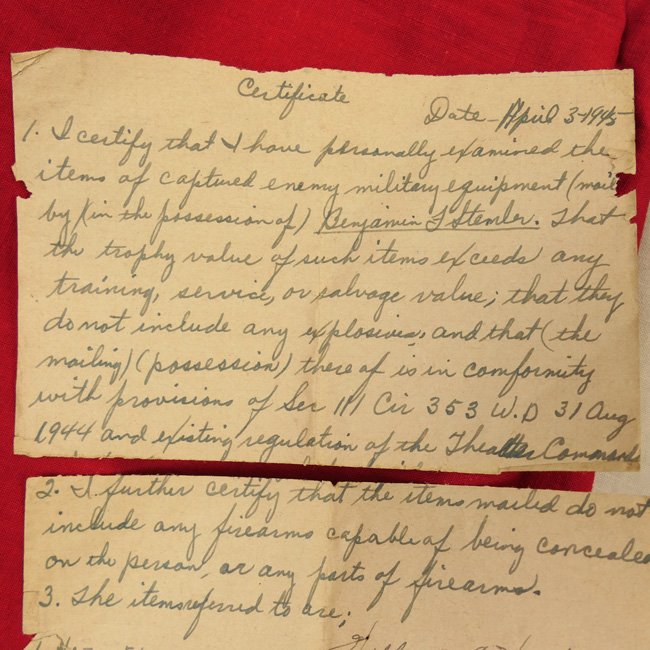 Certificate
Date - April 3-1945
1. I certify that I have personally examined the
items of captured enemy military equipment (mail
by)(in the possession of) Benjamin J Stemler. That
the trophy value of such items exceeds any
training, service, or salvage value; that they
do not include any explosives, and that (the
mailing) (possession) thereof is in comformity
with provisions of Ser III Cir 353 W.D 31 Aug
1944 and existing regulation of the Theater Command
2. I further certify that the items mailed do not
include any firearms capable of being concealed
on the person, or any parts of firearms.
3. The items referred to are;